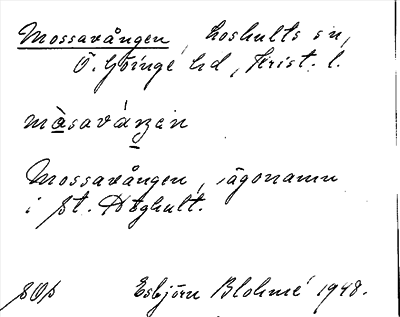 Mossavången, Loshults sn,
Ö. Göinge hd, Krist. l.
màsaváŋen
Mossavången, ägonamn
i St. Höghult.
Esbjörn Blohmé 1948.